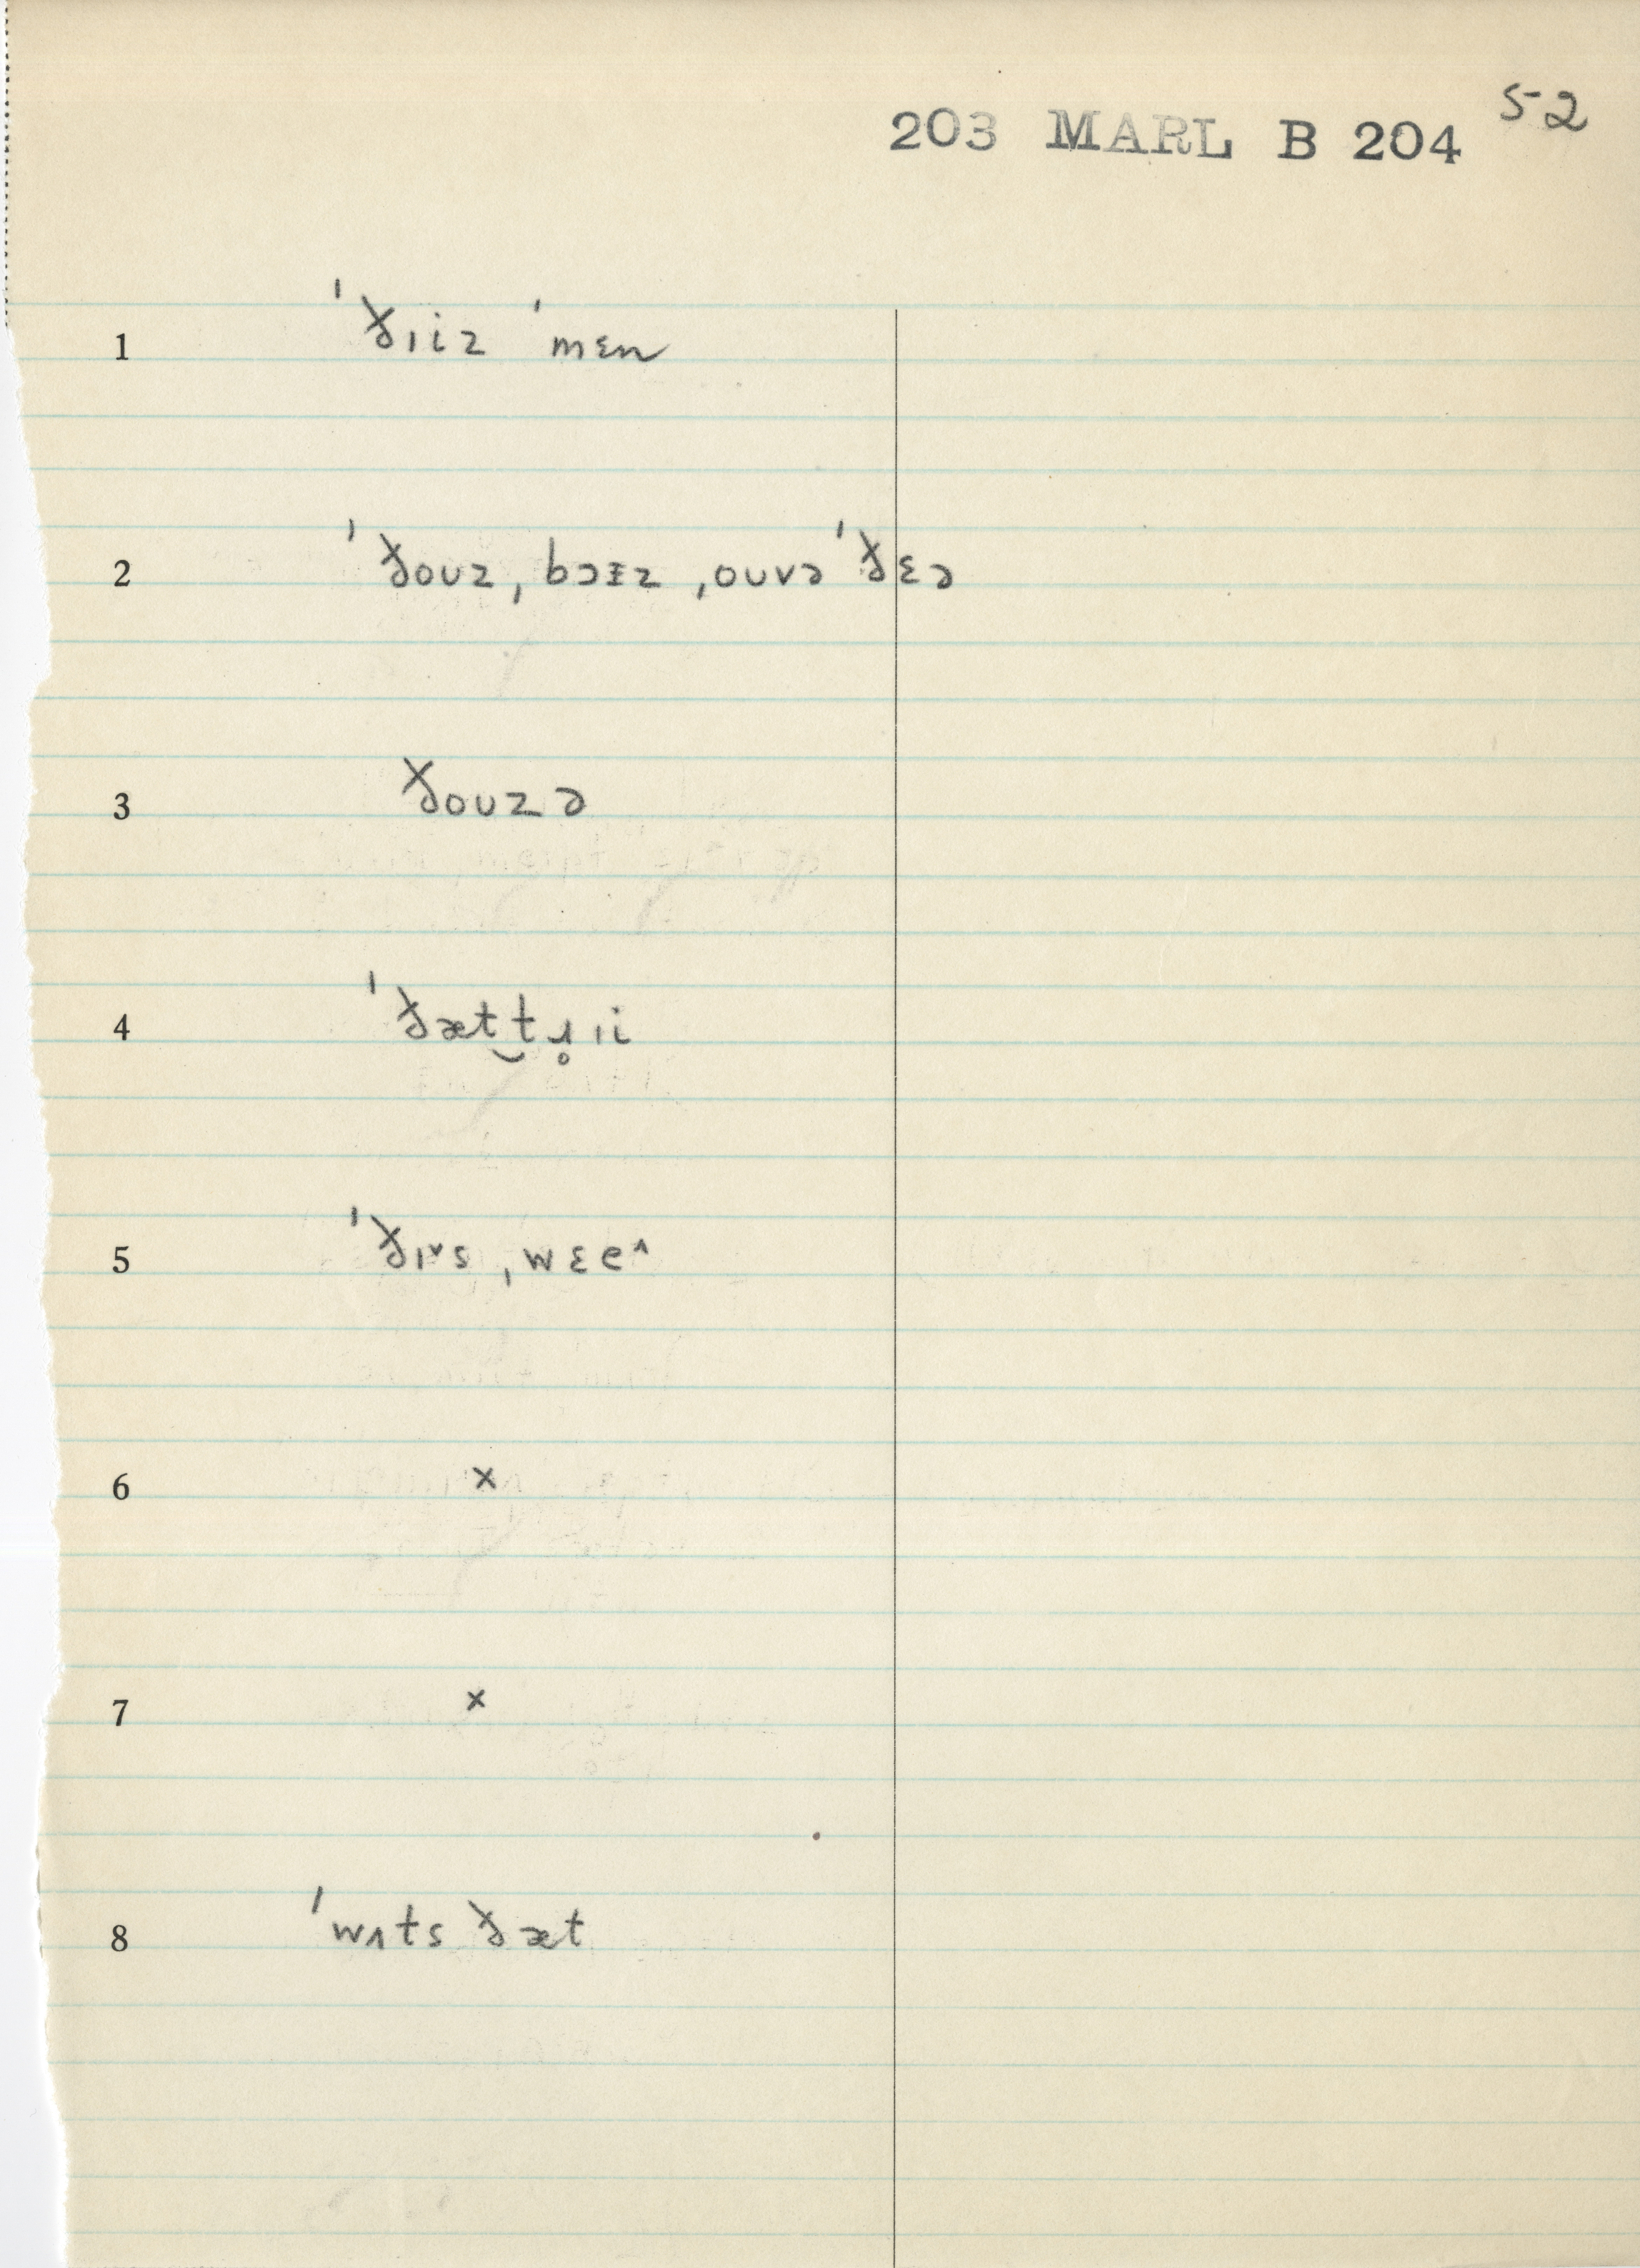 203 MARL B 204 52
1 ˈðɪiz ˈmɛn
2 ˈðouz ˌbɔɪz ˌouvə ˈðɛə
3 ðouzə
4 ˈðæt‿tɹ̥ɪi
5 ˈðɪ˅s ˌwɛe˄
6 x
7 x
8 ˈwʌts ðæt